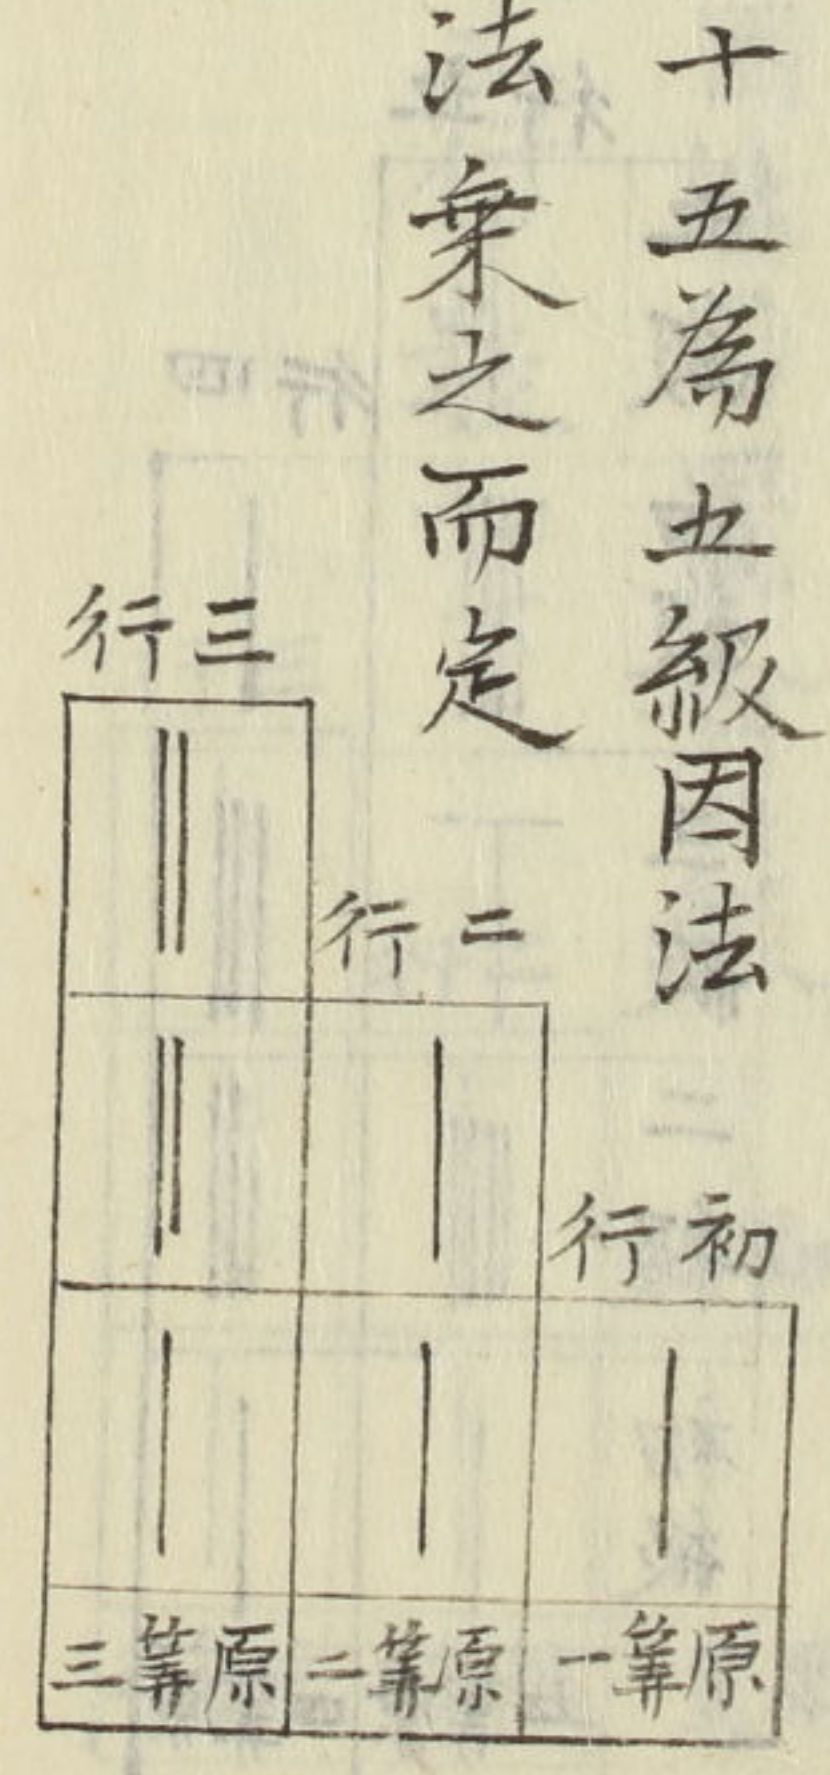 十五為五級因法
法乗之而定
初行
二行
三行
原筭一
原筭二
原筭三